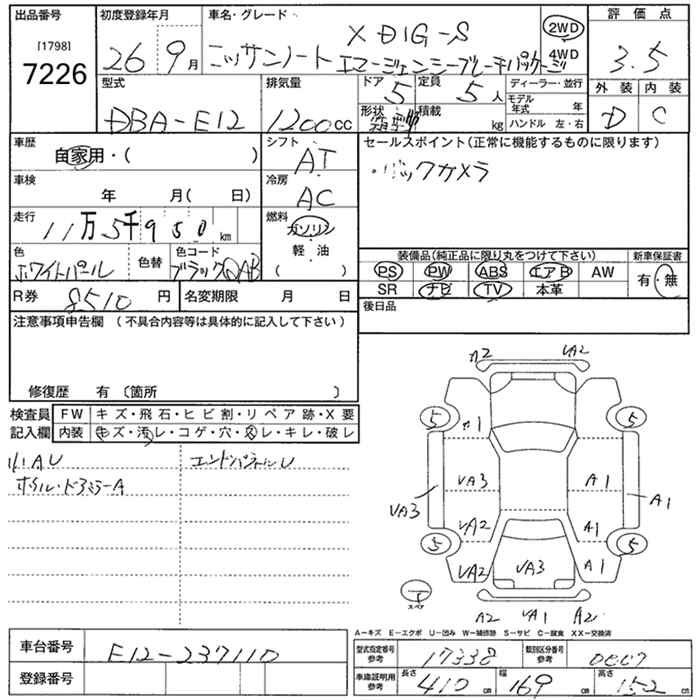 出品番号
[1798]
7226
初度登録年月
26 9月
車名・グレード
X DIG-S
ニッサンノート エマージェンシーブレーキパッケージ
2WD
4WD
評価点
3.5
外装 内装
D C
型式
DBA-E12
排気量
1200cc
ドア
5
定員
5人
形状
積載
kg
ディーラー・並行
モデル年式 年
ハンドル 左・右
車歴
自家用・( )
シフト
AT
車検
年 月( 日)
冷房
AC
走行
11万5千950km
燃料
ガソリン
軽・油
( )
色
ホワイトパール
色替
色コード
ブラックQAB
R券
8510円
名変期限 月 日
セールスポイント(正常に機能するものに限ります)
・バックカメラ
装備品(純正品に限り丸をつけて下さい)
PS PW ABS エアB AW
SR ナビ TV 本革
新車保証書
有・無
後日品
注意事項申告欄(不具合内容等は具体的に記入して下さい)
修復歴 有〔箇所 〕
検査員記入欄
FW キズ・飛石・ヒビ割・リペア跡・X要
内装 キズ・汚レ・コゲ・穴・スレ・キレ・破レ
小AU
ホイル・ドアミラーA
エンドパネルU
A2 UA2
5 5
A1
UA3 A1
UA3 A1
UA2 A1
5 5
UA2 UA3 A1
スペア
A2 UA1 A2
A−キズ E−エクボ U−凹み W−補修跡 S−サビ C−腐食 XX−交換済
車台番号
E12-237110
登録番号
型式指定番号
参考
17338
類別区分番号
参考
車庫証明用
参考
長さ
410cm
幅
169cm
高さ
152cm